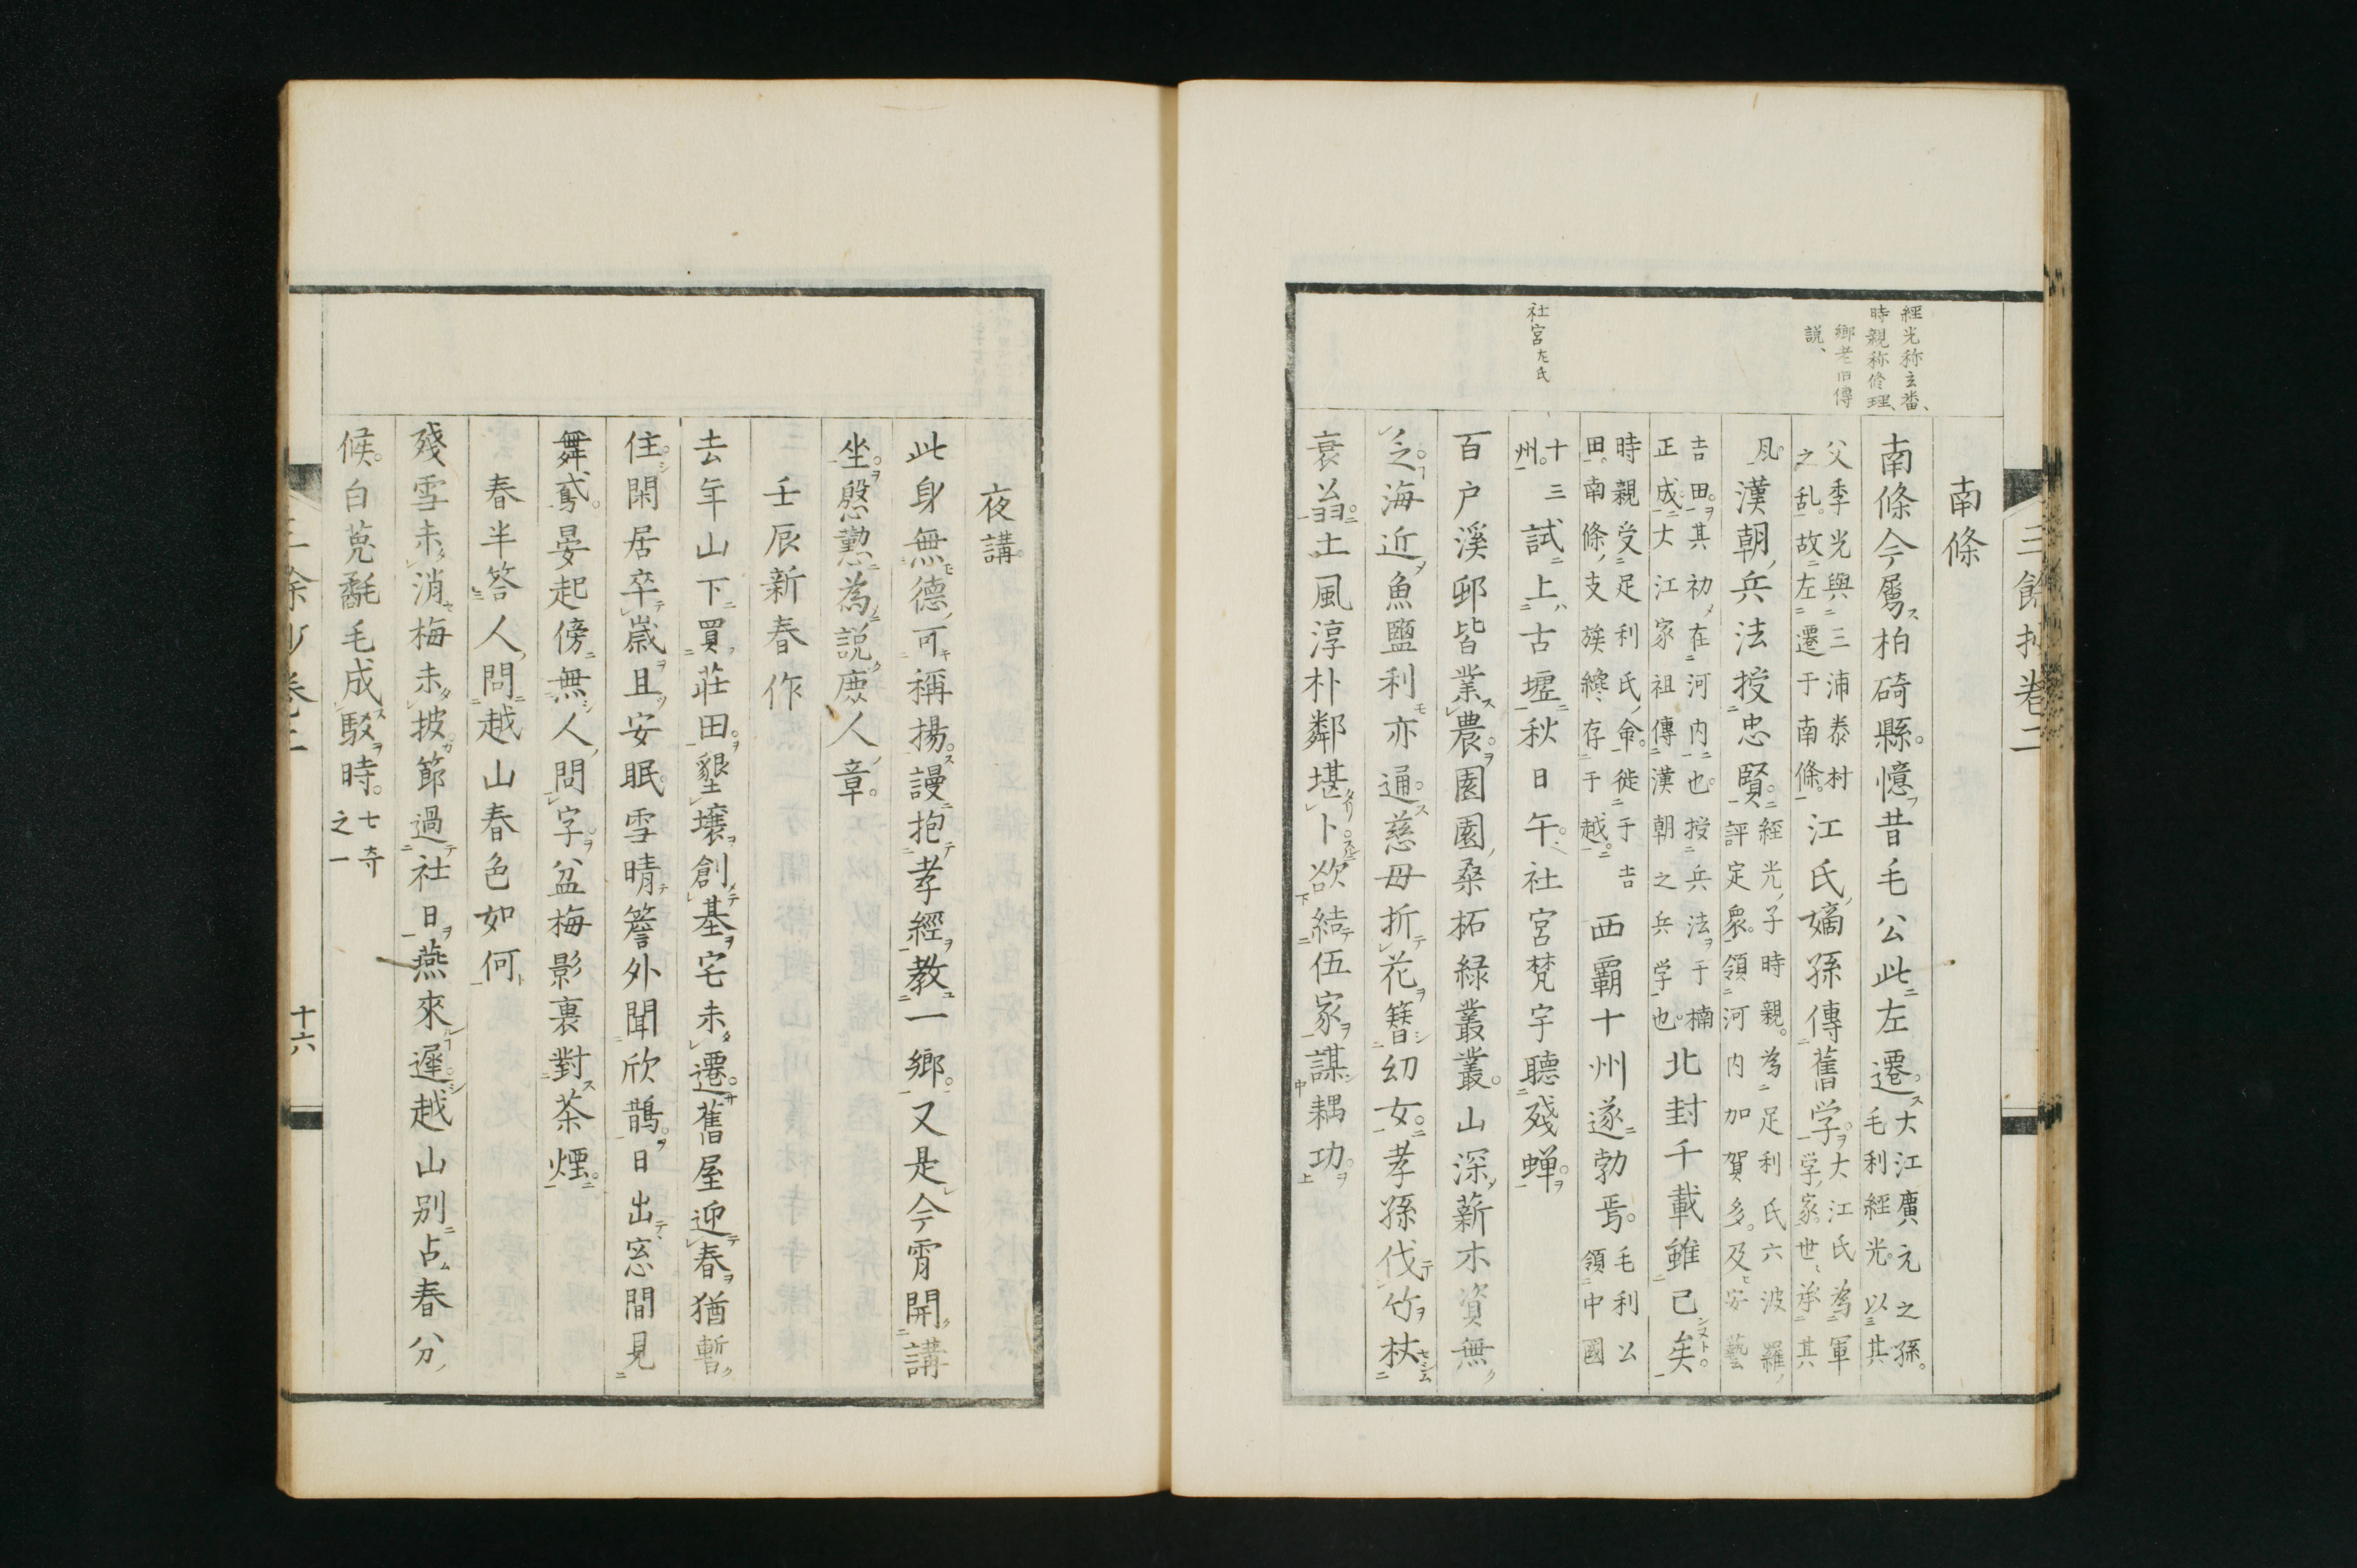 経光称玄蕃、
時親称修理、
郷老旧傳
説、
社宮尤氏
三餘抄卷二
南條
南條今屬柏碕縣。憶昔毛公此左遷。大江廣元之孫。毛利經光。以其
父季光與三浦泰村之乱。故左遷于南條。江氏嫡孫傳舊学。大江氏為軍学家。世〻承其
凡漢朝兵法授忠賢。經光子時親。為足利氏六波羅評定衆。領河内加賀多。及安藝
吉田。其初在河内也。授兵法于楠正成。大江家祖傳漢朝之兵学也。北封千載雖已矣。
時親受足利氏命。徙于吉田。南條支族纔存于越。西霸十州遂勃焉。毛利公領中國
十三州。試上古壇秋日午。社宮梵宇聽殘蝉。
百戸溪邨皆業農。園園桑柘緑叢叢。山深薪木資無
乏。海近魚鹽利亦通。慈母折花簪幼女。孝孫伐竹杖
衰翁。土風淳朴鄰堪卜。欲結伍家謀耦功。
夜講
此身無德可稱揚。謾抱孝經教一鄉。又是今宵開講
坐。慇懃為説庶人章。
壬辰新春作
去年山下買莊田。墾壤創基宅未遷。舊屋迎春猶暫
住。閑居卒歲且安眠。雪晴簷外聞欣鵲。日出窓間見
舞鳶。晏起傍無人問字。盆梅影裏對茶煙。
春半答人問越山春色如何
殘雪未消梅未披。節過社日燕來遲。越山別占春分
候。白兎毳毛成駁時。七奇之一
三餘抄卷二
十六